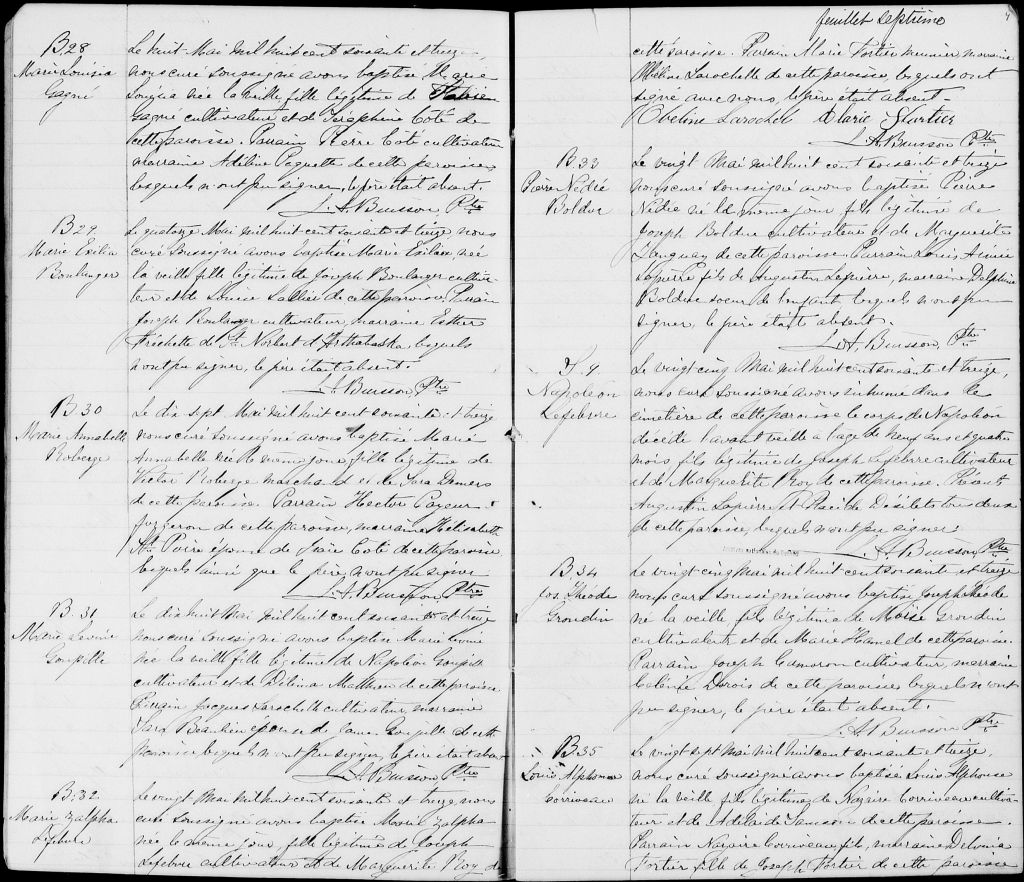 B.28
Marie Louisia
Gagné
Le huit Mai mil huit cent soixante et treize
nous curé soussigné avons baptisé Marie
Louisia née la veille, fille légitime de
Gagné cultivateur et de Séraphine Coté de
cette paroisse. Parrain Pierre Coté cultivateur
marraine Adéline Paquette de cette paroisse
lesquels n'ont pu signer, le père était absent.
L. A. Buisson, Ptre
B 29
Marie Exilia
Boulanger
Le quatorze Mai mil huit cent soixante et treize nous
curé soussigné avons baptisé Marie née
la veille fille légitime de Joseph Boulanger cultiva-
teur et de Louise de cette paroisse. Parrain
Joseph Boulanger cultivateur, marraine Esther
Fréchette d' St Norbert d'Arthabaska, lesquels
n'ont pu signer, le père était absent.
L. A. Buisson, Ptre
B 30
Marie Annabelle
Roberge
Le dix sept Mai mil huit cent soixante et treize
nous curé soussigné avons baptisé Marie
Annabelle née le même jour, fille légitime de
Victor Roberge marchand et de Demers
de cette paroisse. Parrain Hector
forgeron de cette paroisse, marraine
Poire épouse de Coté de cette paroisse
lesquels ainsi que le père, n'ont pu signer
L. A. Buisson, Ptre
B. 31
Marie
Goupille
Le dix huit Mai mil huit cent soixante et treize
nous curé soussigné avons baptisé Marie
née la veille fille légitime de Napoléon Goupille
cultivateur et de Délina Mathieu de cette paroisse
Parrain Jacques Larochelle cultivateur, marraine
Beaulieu épouse de Goupille de cette
paroisse lesquels n'ont pu signer, le père était absent
L. A. Buisson Ptre
B. 32
Marie Zalpha
Lefebvre
Le vingt Mai mil huit cent soixante et treize, nous
curé soussigné avons baptisé Marie Zalpha
née le même jour, fille légitime de Joseph
Lefebvre cultivateur et de Marguerite Roy de
feuillet septième
7
cette paroisse. Parrain Marie Fortier meunier, marraine
Larochelle de cette paroisse, lesquels ont
signé avec nous, le père était absent.
Larochelle Marie
L. A. Buisson Ptre
B 33
Pierre Nédié
Bolduc
Le vingt Mai mil huit cent soixante et treize
nous curé soussigné avons baptisé Pierre
Nédie né le même jour fils légitime de
Joseph Bolduc cultivateur et de Marguerite
Tanguay de cette paroisse. Parrain Louis Aimé
Lapierre fils de Augustin Lapierre, marraine Delphine
Bolduc soeur de l'enfant lesquels n'ont pu
signer, le père était absent.
L. A. Buisson, Ptre
S. 9
Napoléon
Lefebvre
Le vingt cinq Mai mil huit cent soixante et treize,
nous curé soussigné avons inhumé dans le
cimetière de cette paroisse le corps de Napoléon
décédé l'avant veille à l'age de neuf ans et quatre
mois, fils légitime de Joseph Lefebvre cultivateur
et de Marguerite Roy de cette paroisse. Présents
Augustin Lapierre et Placide Désilets tous deux
de cette paroisse, lesquels n'ont pu signer.
L. A. Buisson, Ptre
B 34
Jos. Théode
Grondin
Le vingt cinq Mai mil huit cent soixante et treize
nous curé soussigné avons baptisé Joseph Théode
né la veille, fils légitime de Moïse Grondin
cultivateur et de Marie Hamel de cette paroisse.
Parrain Joseph Cameron cultivateur, marraine
de cette paroisse lesquels n'ont
pu signer, le père était absent.
L. A. Buisson Ptre
B 35
Louis Alphonse
Corriveau
Le vingt sept Mai mil huit cent soixante et treize,
nous curé soussigné avons baptisé Louis Alphonse
né la veille, fils légitime de Nazaire Corriveau cultiva-
teur et de Adélaïde Samson de cette paroisse.
Parrain Nazaire Corriveau fils, marraine
Fortier fille de Joseph Fortier de cette paroisse